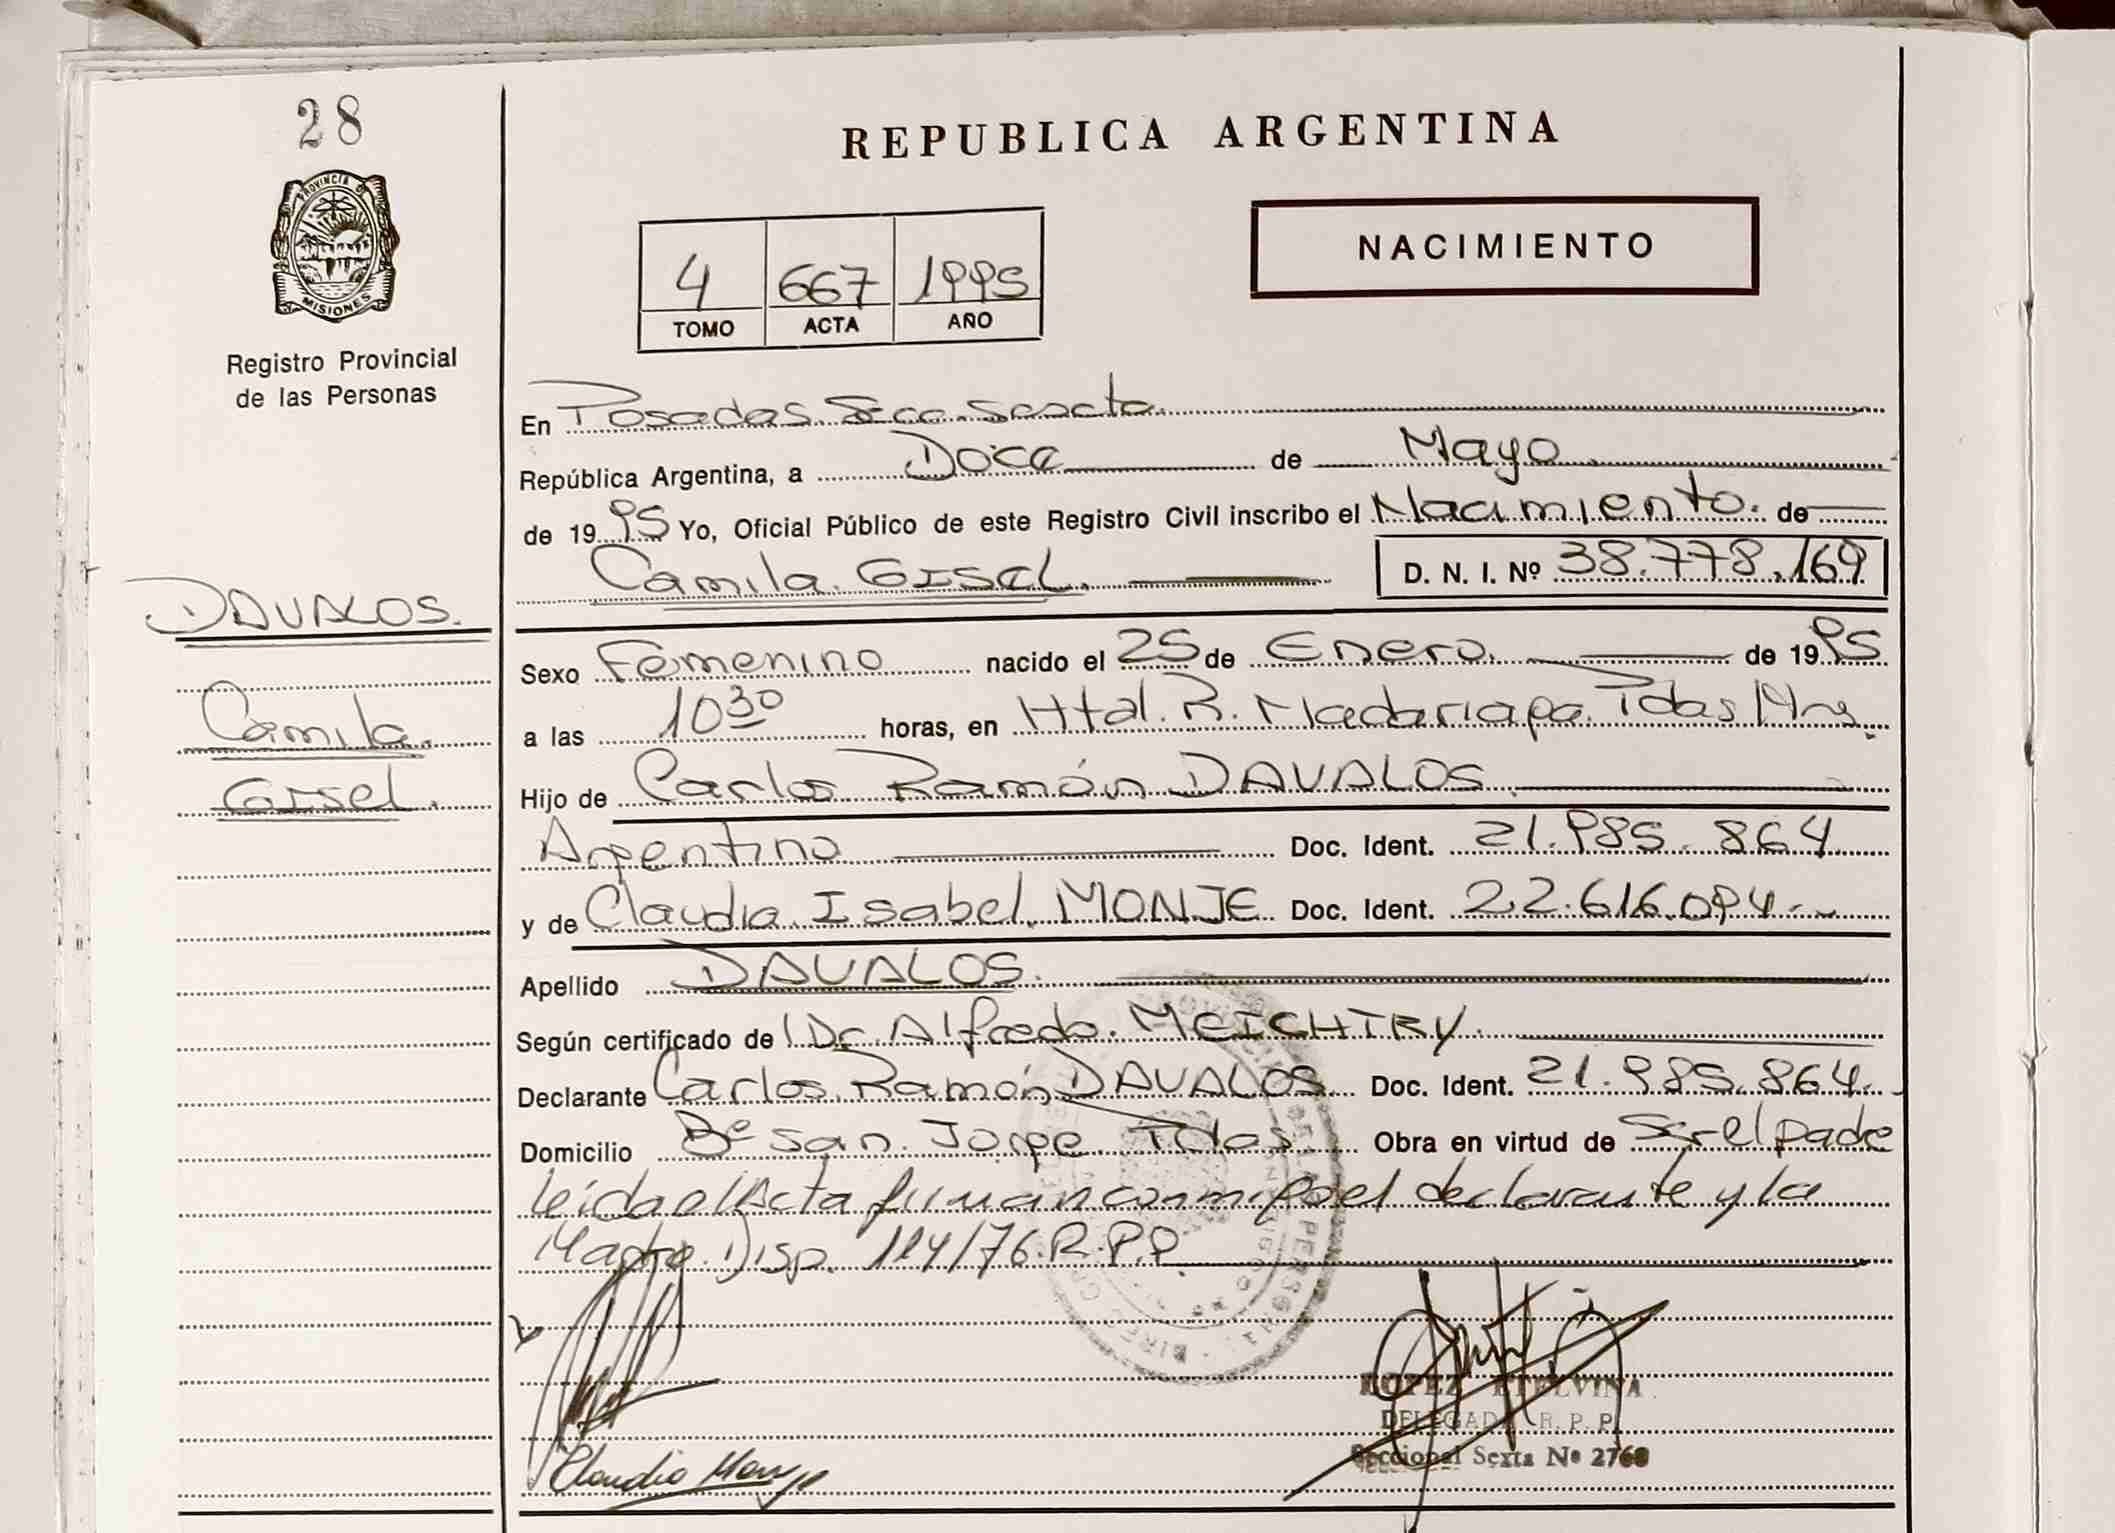 28
PROVINCIA DE
MISIONES
Registro Provincial
de las Personas
REPUBLICA ARGENTINA
NACIMIENTO
4 667 1995
TOMO ACTA AÑO
En Posadas Secc. Sexcta
República Argentina, a Doce de Mayo
de 1995 Yo, Oficial Público de este Registro Civil inscribo el Nacimiento. de
Camila Gisel. D. N. I. Nº 38.778.169
DAVALOS.
Camila
Gisel.
Sexo Femenino nacido el 25 de Enero de 1995
a las 10 30 horas, en Htal. R. Madariaga. Pdas Mns
Hijo de Carlos Ramón DAVALOS
Argentino Doc. Ident. 21.985.864
y de Claudia Isabel MONJE Doc. Ident. 22.616.094
Apellido DAVALOS.
Según certificado de Dr. Alfredo MEICHTRY.
Declarante Carlos Ramón DAVALOS Doc. Ident. 21.985.864.
Domicilio Bº San Jorge Pdas Obra en virtud de Ser el padre
leida el Acta firman conmigo el declarante y la
Madre. Disp. 114/76. R.P.P.
Claudia Monje
LOPEZ ETELVINA
DELEGADA R. P. P.
Seccional Sexta Nº 2768